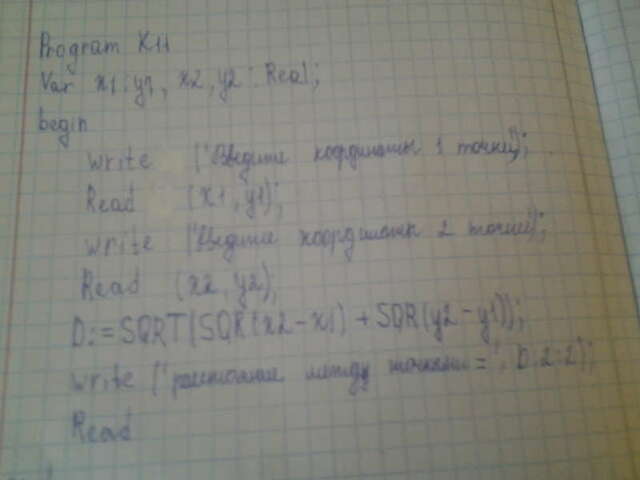 Program K11
Var x1, y1, x2, y2 : Real;
begin
write ('Введите координаты 1 точки');
Read (x1, y1);
write ('Введите координаты 2 точки');
Read (x2, y2);
D:=SQRT(SQR(x2-x1) + SQR(y2-y1));
write ('расстояние между точками = ', D:2:2);
Read